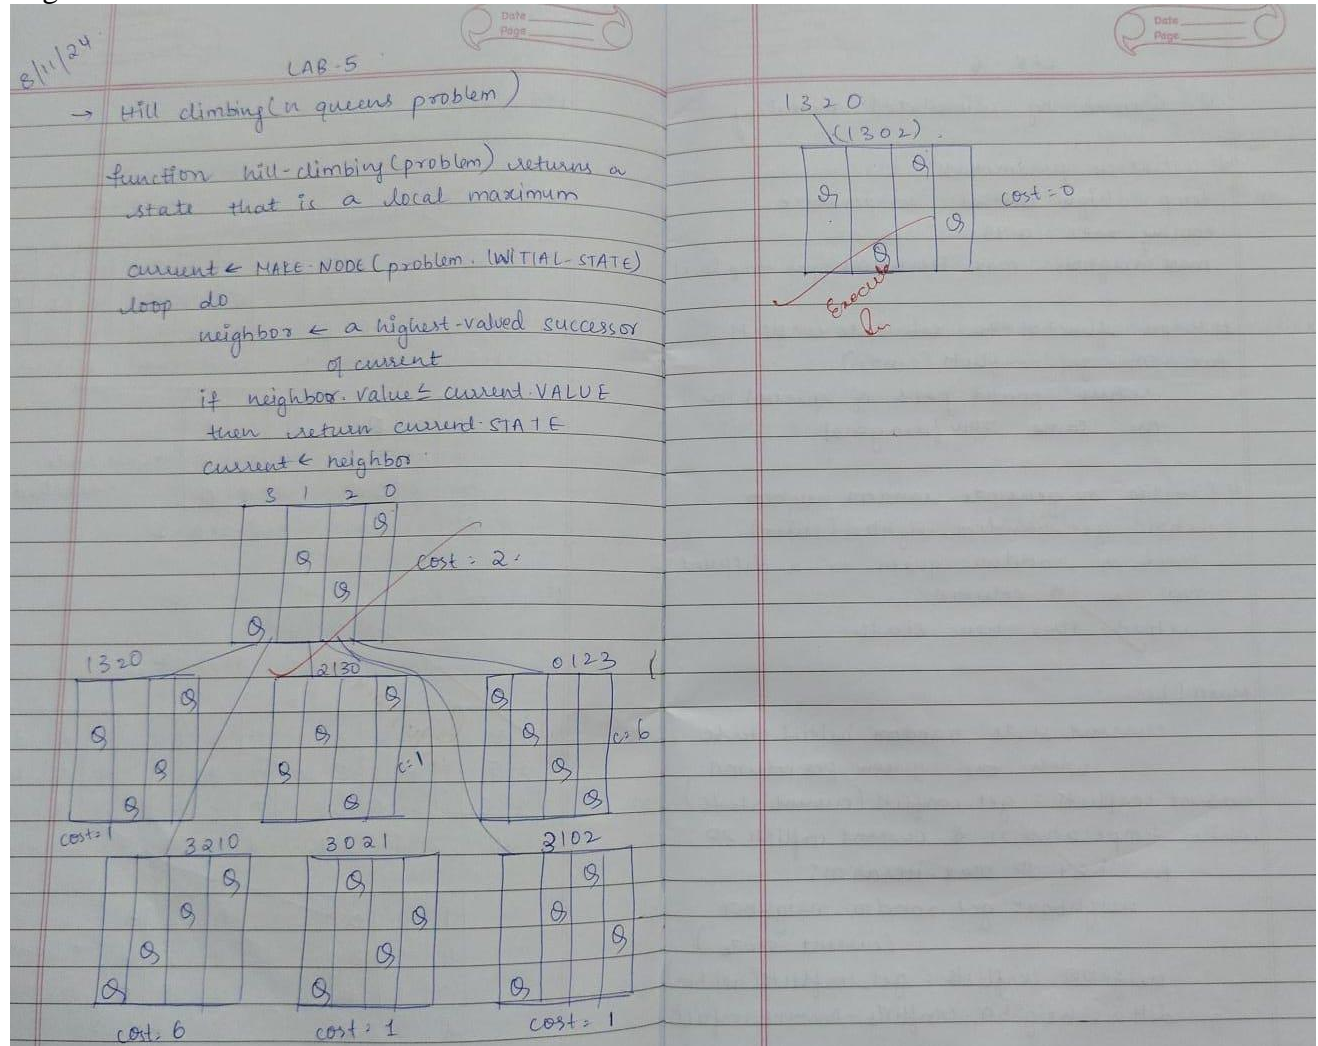 Date
Page
8/11/24
LAB-5
→ Hill climbing (n queens problem)
function hill-climbing (problem) returns a
state that is a local maximum
current ← MAKE-NODE (problem. INITIAL-STATE)
loop do
neighbor ← a highest-valued successor
of current
if neighbor. value ≤ current.VALUE
then return current.STATE
current ← neighbor
3 1 2 0
Q
Q
cost = 2
Q
Q
1320
2130
0123
Q
Q
Q
Q
Q
Q
c=6
Q
Q
c=1
Q
Q
Q
Q
cost=1
3210
3021
3102
Q
Q
Q
Q
Q
Q
Q
Q
Q
Q
Q
Q
cost=6
cost=1
cost=1
Date
Page
1320
(1302)
Q
Q
cost=0
Q
Q
Execute